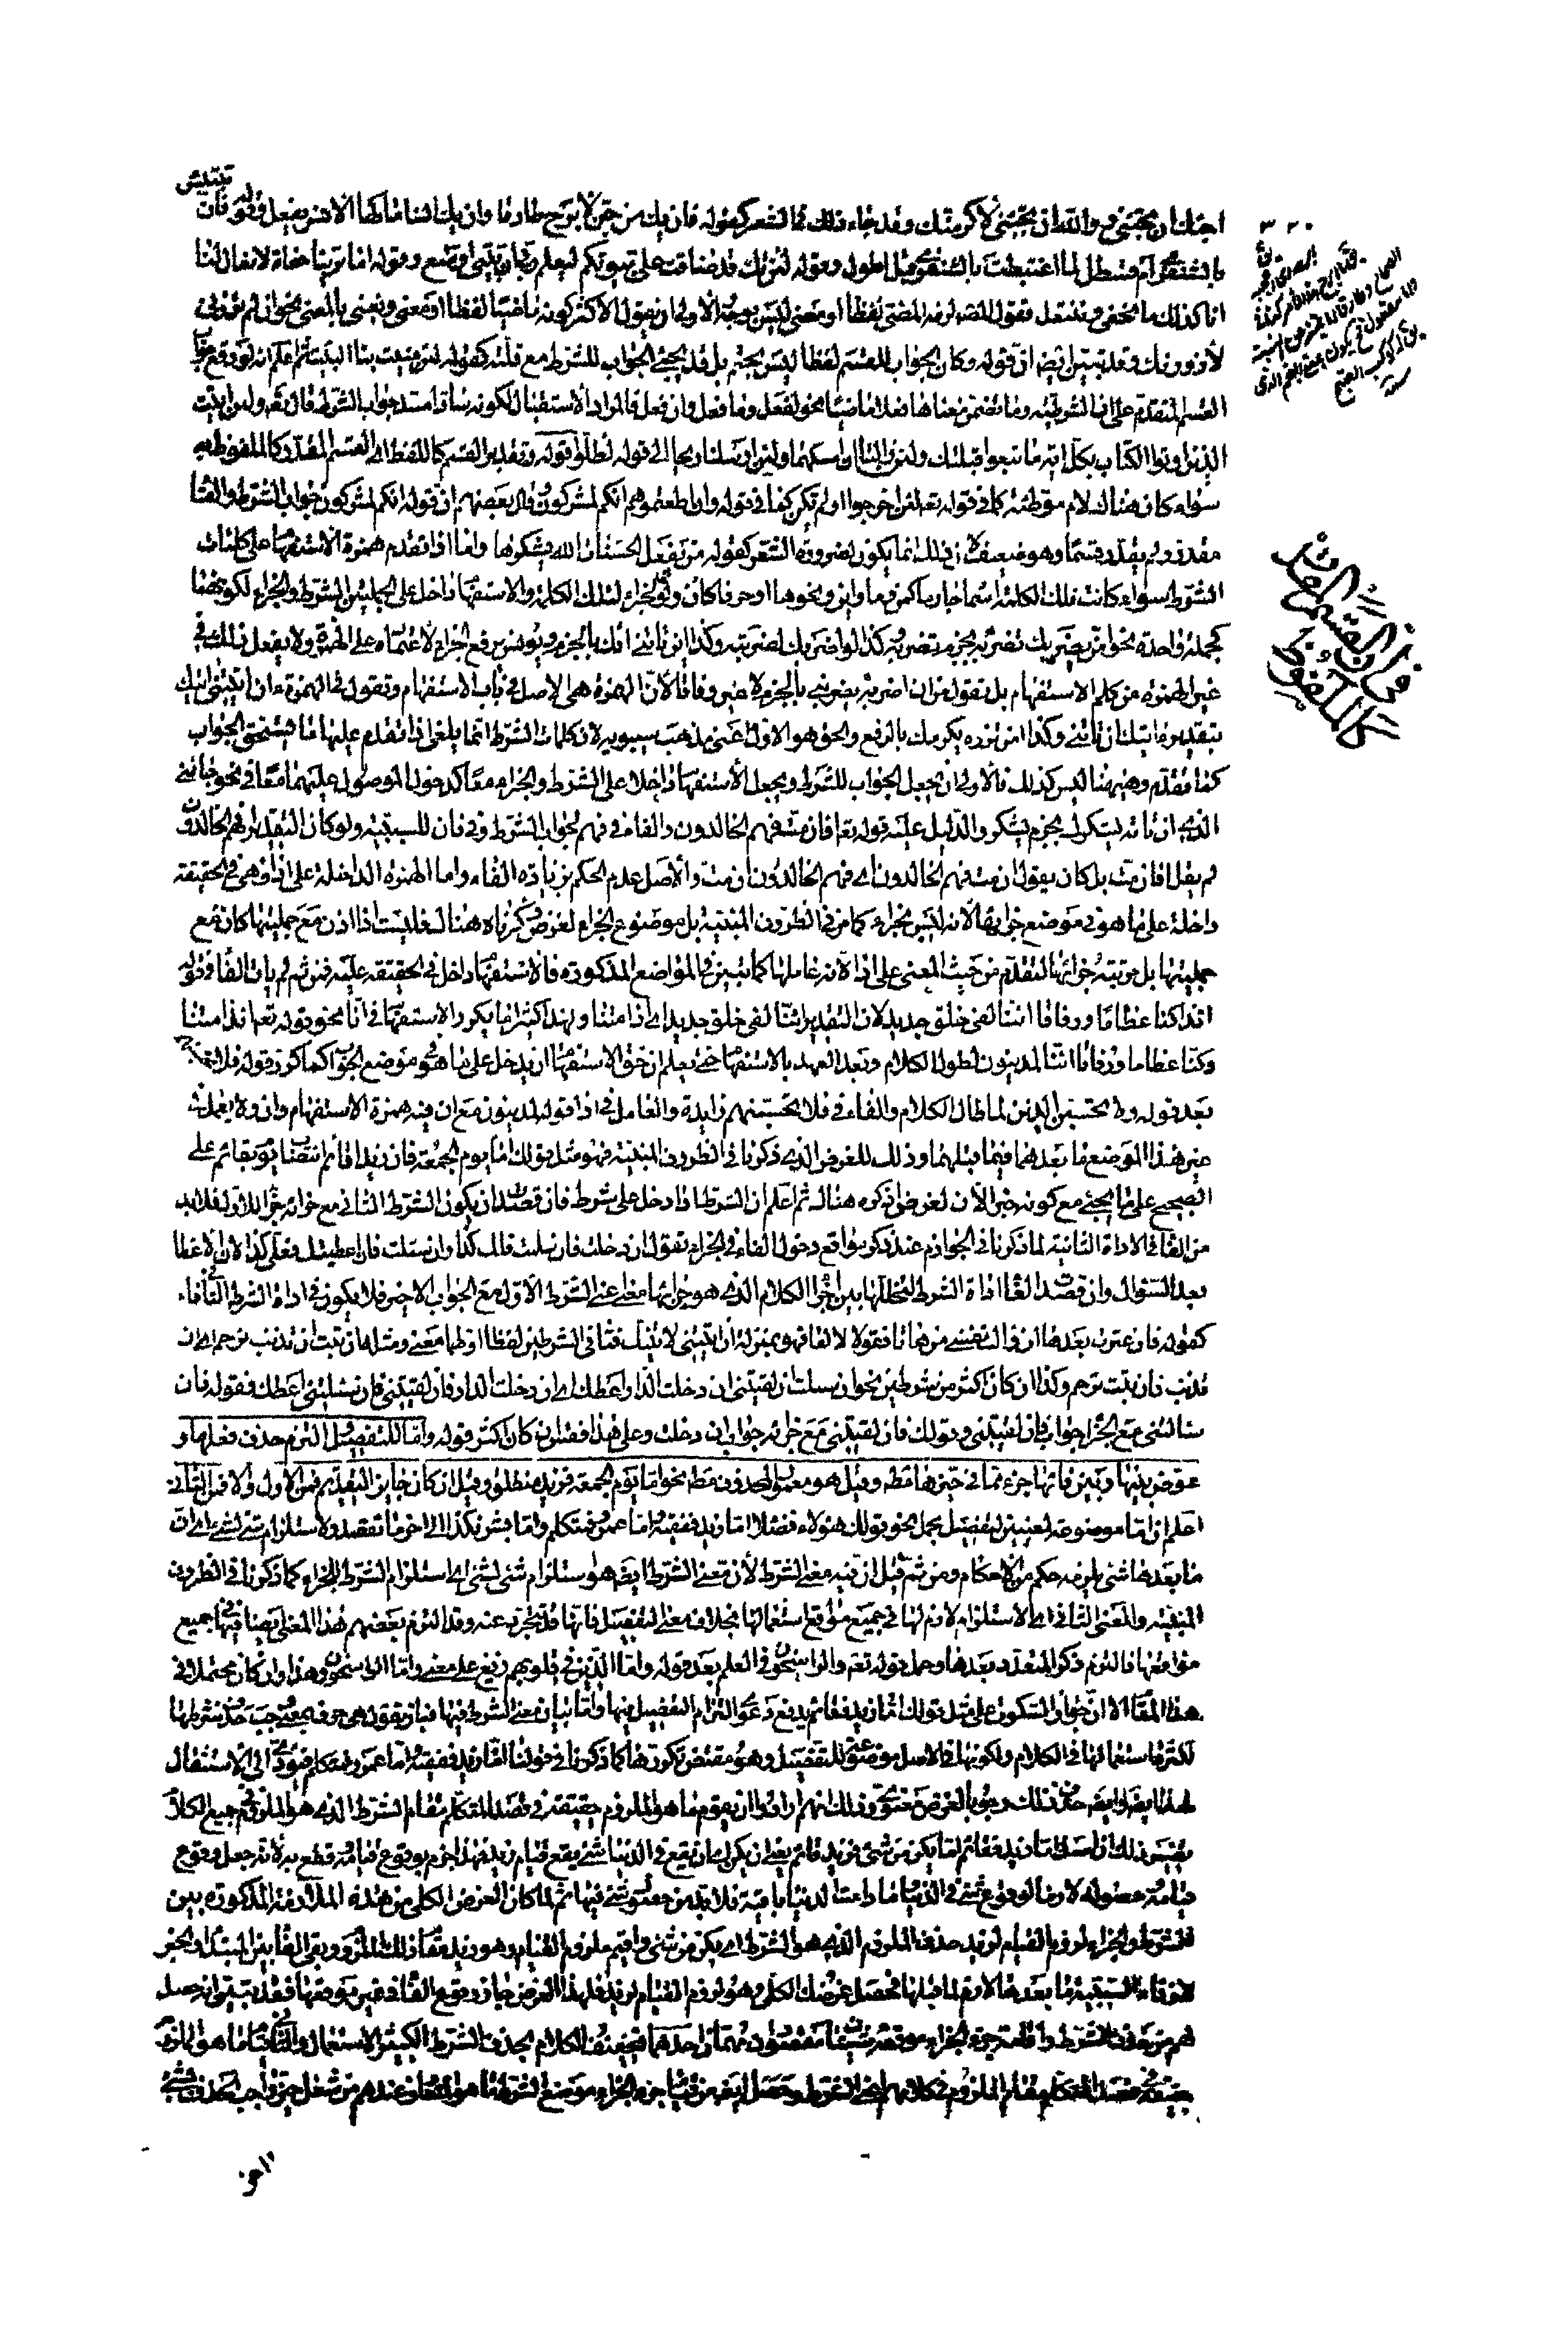 تبتئس
اجبتك ان تجبني و والله ان تجبني لاكرمتك وقد جاء ذلك في الشعر كقوله فان يك من جن لابرح طارقا وان يك انسا ماكها الانس يفعل وقوله فان
بالشنفرى ام قسطل لما اغتبطت بالشنفرى قبل اطول وقوله لئن تك قد ضاقت علي بيوتكم ليعلم ربي ان بيتي اوسع وقوله اما ترينا حفاة لا نعال لنا
انا كذلك ما نحفى وننتعل فقول المصنف لزمه المضي لفظا او معنى ليس بوجه الاولى ان يقول الاكثر كونه ماضيا لفظا او معنى ونعني بالمعنى نحو ان لم تزرني
لازورنك وقد تبين ايضا ان قوله وكان الجواب للقسم لفظا ليس بحتم بل قد يجيء الجواب للشرط مع قلته كقوله لئن منيت بنا البيت ثم اعلم انه لو وقع جواب
القسم المتقدم على ان الشرطية وما تضمن معناها فعلا ماضيا نحو لفعل وما فعل وان فعل فالمراد الاستقبال لكونه سادا مسد جواب الشرط قال تعالى ولئن اتيت
الذين اوتوا الكتاب بكل اية ما تبعوا قبلتك ولئن زالتا ان امسكهما ولئن ارسلنا ريحا الى قوله لظلوا قوله وتقدير القسم كاللفظ اي القسم المقدر كالملفوظ به
سواء كان هناك لام موطئة كما في قوله تعالى لئن اخرجوا او لم تكن كما في قوله وان اطعتموهم انكم لمشركون وقال بعضهم ان قوله انكم لمشركون جواب الشرط والفاء
مقدرة ولم يقدر قسما وهو ضعيف لان ذلك انما يكون لضرورة الشعر كقوله من يفعل الحسنات الله يشكرها واما اذا تقدم همزة الاستفهام على كلمات
الشرط سواء كانت تلك الكلمة اسما جازما كمن وما واين ونحوها او حرفا كان ولو فالجزاء لتلك الكلمة والاستفهام داخل على الجملتين الشرط والجزاء لكونهما
كجملة واحدة نحو امن يضربك تضربه بجزم تضربه وكذا الو ضربك لضربته وكذا ان تاتني اتك بالجزم ويونس يرفع الجزاء لاعتماده على الهمزة ولا يفعل ذلك في
غير الهمزة من كلم الاستفهام بل تقول من ان اضربه يضربني بالجزم لا غير وفاقا لان الهمزة هي الاصل في باب الاستفهام وتقول في الهمزة ءان اتيتني اتيك
بتقديره ءاتيك ان تاتني وكذا امن تزره يكرمك بالرفع والحق هو الاول اعني مذهب سيبويه لان كلمات الشرط انما يلغى اذا تقدم عليها ما يستحق الجواب
كما تقدم وهيهنا ليس كذلك فالاولى ان يجعل الجواب للشرط ويجعل الاستفهام داخلا على الشرط والجزاء معا كدخول الموصول عليهما معا في نحو جاءني
الذي ان تاته يشكرك بجزم يشكر والدليل عليه قوله تعالى افان مت فهم الخالدون والفاء في فهم لجواب الشرط وفي فان للسببية ولو كان التقدير افهم الخالدون
لم يقل افان مت بل كان يقول ان مت فهم الخالدون اي فهم الخالدون ان مت والاصل عدم الحكم بزيادة الفاء واما الهمزة الداخلة على اذا فهي في الحقيقة
داخلة على ما هو في موضع جزائها لانه ليس بجزاء كما مر في الظروف المبنية بل موضوع الجزاء لغرض ذكرناه هناك فليست اذا اذن مع جمليتها كان مع
جمليتها بل مرتبة جزائها التقدم من حيث المعنى على اذا لانه عاملها كما تبين في المواضع المذكورة فالاستفهام داخل في الحقيقة عليه فمن ثم لم يات الفاء في قوله
ائذا كنا عظاما ورفاتا ائنا لفي خلق جديد لان التقدير ائنا لفي خلق جديد اي اذا متنا ولهذا كثيرا ما يكرر الاستفهام في انا نحو قوله تعالى ائذا متنا
وكنا عظاما ورفاتا ائنا لمدينون لطول الكلام وبعد العهد بالاستفهام حتى يعلم ان حق الاستفهام ان يدخل على ما هو في موضع الجواب كما كرر قوله فلا تحسبنهم
بعد قوله ولا تحسبن الذين لما طال الكلام والفاء في فلا تحسبنهم زايدة والعامل في اذا قوله لمدينون مع ان فيه همزة الاستفهام وان ولا يعملان
غير هذا الموضع ما بعدهما فيما قبلهما وذلك للغرض الذي ذكرنا في الظروف المبنية فهو مثل قولك اما يوم الجمعة فان زيدا قائم انتصاب يوم بقائم على
الصحيح على ما يجيء مع كونه خبرا لان لغرض اذكره هناك ثم اعلم ان الشرط اذا دخل على شرط فان قصدت ان يكون الشرط الثاني مع جزائه جزاء للاول فلابد
من الفاء في الاداة الثانية لما ذكرنا في الجوازم عند ذكر مواقع دخول الفاء في الجزاء تقول ان دخلت فان سلمت فلك كذا وان سئلت فان اعطيتك فعلي كذا لان الاعطاء
بعد السؤال وان قصدت الغاء اداة الشرط لتخللها بين اجزاء الكلام الذي هو جزاؤها معنى اعني الشرط الاول مع الجواب الاخير فلا يكون في اداة الشرط الثاني فاء
كقوله فان عثرت بعدها ان والت نفسي من هاتا فقولا لا لعا فهو بمنزلة ان اتيتني لاتيتك فثاني الشرطين لفظا اولهما معنى ومثله ان تبت ان تذنب ترحم اي ان
تذنب فان تبت ترحم وكذا ان كان اكثر من شرطين نحو ان سئلت ان لقيتني ان دخلت الدار اعطك اي ان دخلت الدار فان لقيتني فان سئلتني اعطك فقوله فان
سئلتني مع الجزاء جواب فان لقيتني وقولك فان لقيتني مع جزائه جواب ان دخلت وعلى هذا فقس ان كان اكثر قوله واما للتفصيل التزم حذف فعلها و
عوض بينها وبين فائها جزء مما في حيزها مطلقا وقيل هو معمول المحذوف مطلقا نحو اما يوم الجمعة فزيد منطلق وقيل ان كان جايز التقديم فمن الاول والا فمن الثاني
اعلم ان اما موضوعة لمعنيين لتفصيل مجمل نحو قولك هؤلاء فضلاء اما زيد ففقيه واما عمرو فمتكلم واما بشر فكذا الى اخر ما تقصد ولاستلزام شيء لشيء اي ان
ما بعدها شيء يلزمه حكم من الاحكام ومن ثم قيل ان فيه معنى الشرط لان معنى الشرط ايضا هو استلزام شيء لشيء اي استلزام الشرط للجزاء كما ذكرنا في الظروف
المبنية والمعنى الثاني اي الاستلزام لازم لها في جميع مواقع استعمالها بخلاف معنى التفصيل فانها قد تتجرد عنه وقد التزم بعضهم هذا المعنى ايضا فيها في جميع
مواقعها فالتزم ذكر المتعدد بعدها وحمل قوله تعالى والراسخون في العلم بعد قوله واما الذين في قلوبهم زيغ على معنى واما الراسخون وهذا وان كان محتملا في
هذا المقام الا ان جواز السكوت على مثل قولك اما زيد فقائم يدفع دعوى التزام التفصيل فيها واما بيان معنى الشرط فيها فبان نقول هي حرف بمعنى ان وجب حذف شرطها
لكثرة استعمالها في الكلام ولكونها في الاصل موضوعة للتفصيل وهو مقتض تكررها كما ذكرنا في قولنا اما زيد ففقيه واما عمرو فمتكلم فيؤدي الى الاستثقال
لهذا ايضا وايضا حذف ذلك وجوبا لغرض معنوي وذلك انهم ارادوا ان يقوم ما هو الملزوم حقيقة في قصد المتكلم مقام الشرط الذي هو الملزوم في جميع الكلام
يفسر ذلك ان اصل اما زيد فقائم اما يكن من شيء فزيد قائم يعني ان يكن اي ان يقع في الدنيا شيء يقع قيام زيد فهذا جزم بوقوع قيامه وقطع به لانه جعل وقوع
قيامه حصوله لازما لوقوع شيء في الدنيا وما دامت الدنيا باقية فلابد من حصول شيء فيها ثم لما كان الغرض الكلي من هذه الملازمة المذكورة بين
الشرط والجزاء لزوم القيام لزيد حذف الملزوم الذي هو الشرط اي يكن من شيء واقيم ملزوم القيام وهو زيد مقام ذلك الملزوم وبقي الفاء بين المبتدأ والخبر
لان فاء السببية ما بعدها لازم لما قبلها فحصل غرضك الكلي وهو لزوم القيام لزيد فلهذا الغرض جاز وقوع الفاء في غير موقعها فقد تبين انه حصل
لهم من حذف الشرط واقامة جزء الجزاء موقعه شيئان مقصودان مهمان احدهما تخفيف الكلام بحذف الشرط الكثير الاستعمال والثاني قيام ما هو الملزوم
حقيقة في قصد المتكلم مقام الملزوم في كلامهم اعني الشرط وحصل ايضا من قيام جزء الجزاء موضع الشرط ما هو المتعارف عندهم من شغل حيز واجب الحذف بشيء
مر ان القسم المقدر
كالملفوظ